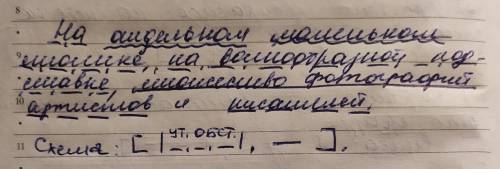 8
На отдельном маленьком
9 столике, на волнообразной под-
ставке, множество фотографий
10 артистов и писателей.
11 Схема: [ |ут. обст.|, — ].